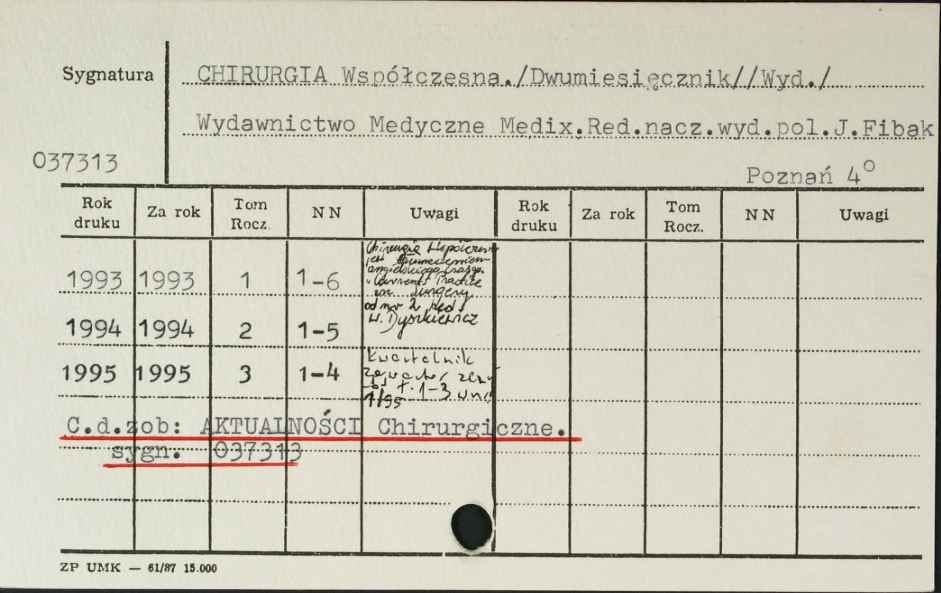 Sygnatura CHIRURGIA Współczesna./Dwumiesięcznik//Wyd./
Wydawnictwo Medyczne Medix.Red.nacz.wyd.pol.J.Fibak
037313 Poznań 4°
Rok druku Za rok Tom Rocz. NN Uwagi Rok druku Za rok Tom Rocz. NN Uwagi
Chirurgia Współczesna
jest
Current Practice
in Surgery
od nr 2 red.
W. Dyszkiewicz
1993 1993 1 1-6
1994 1994 2 1-5
Kwartalnik
1995 1995 3 1-4
t. 1-3
1/95
C.d.zob: AKTUALNOŚCI Chirurgiczne.
sygn. 037313
ZP UMK — 61/87 15.000